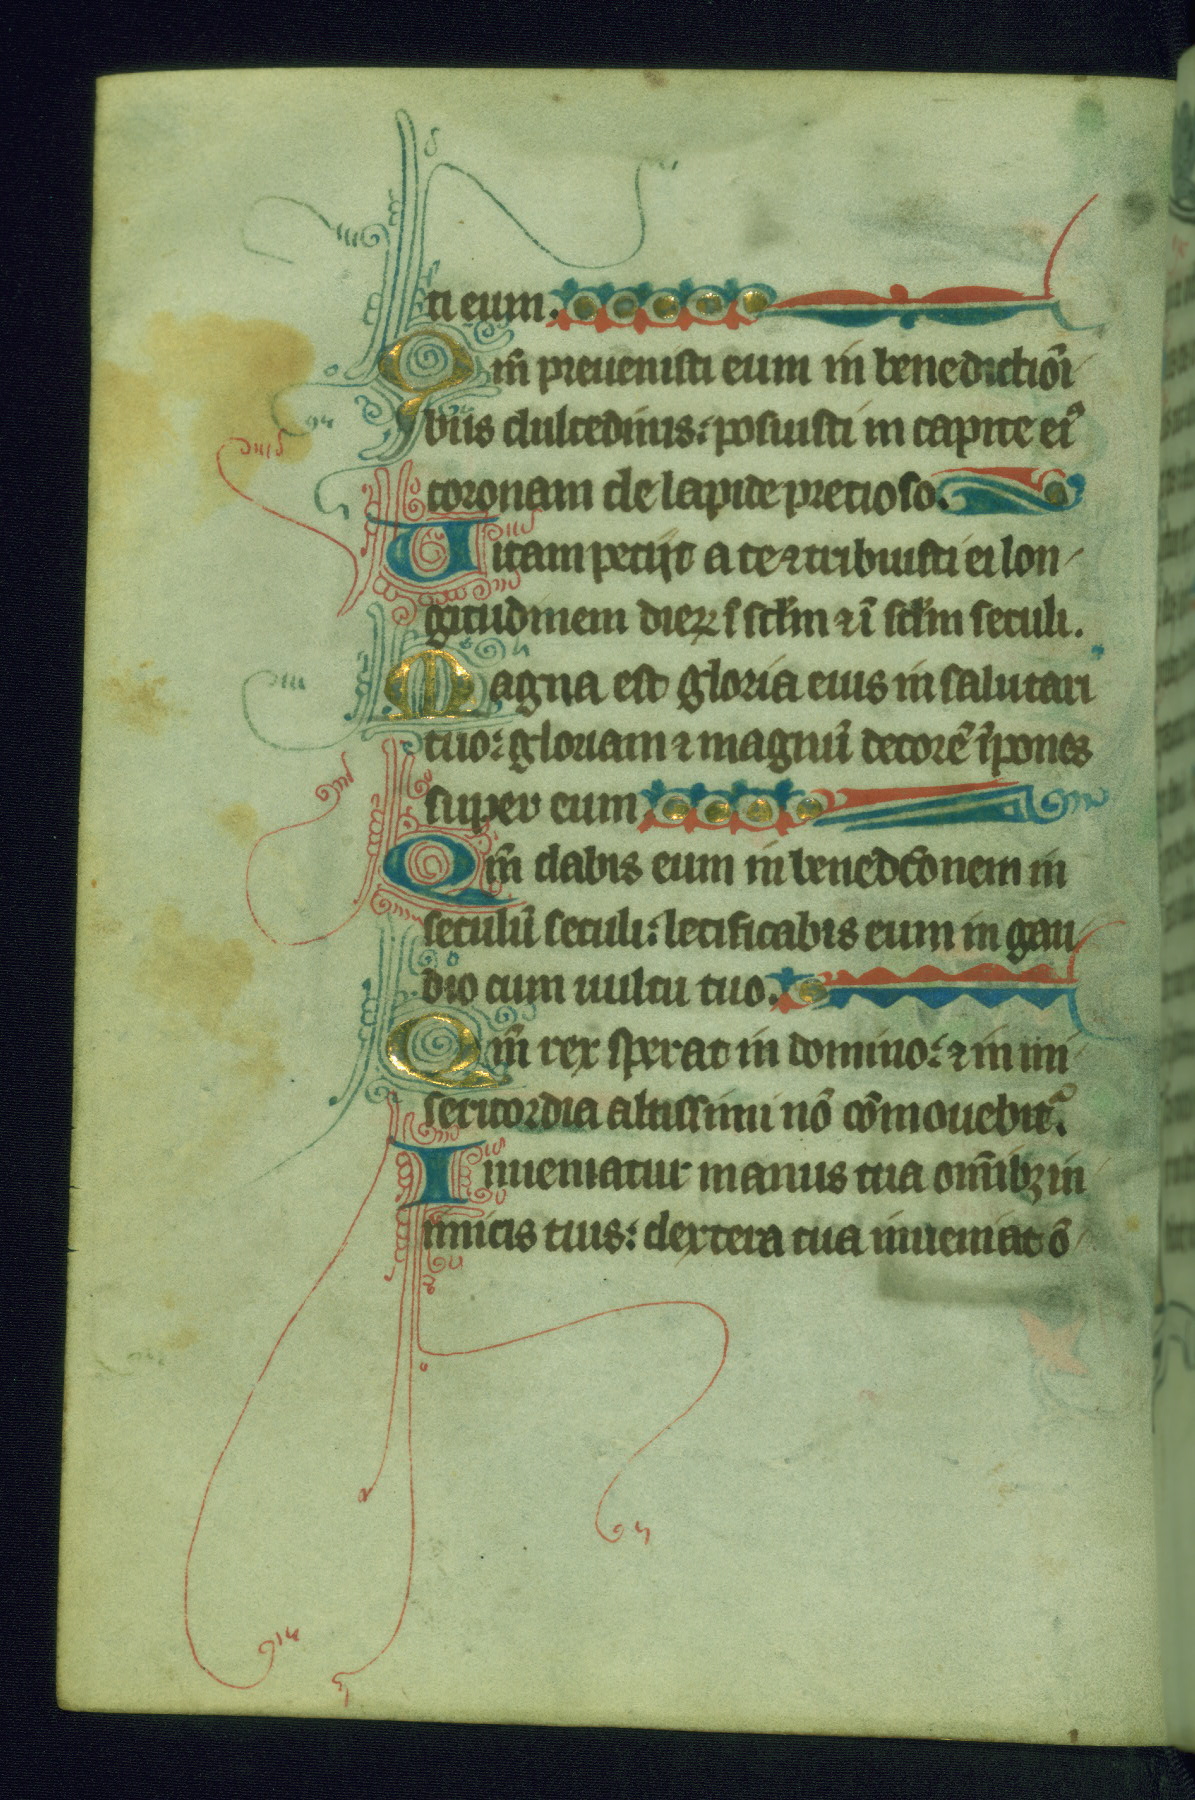 ti eum.
Qm̄ preuenisti eum in benedictiōi
bus dulcedinis: posuisti in capite ei⁹
coronam de lapide precioso.
Uitam petijt a te ⁊ tribuisti ei lon
gitudinem dieꝝ ī sclm̄ ⁊ ī sclm̄ seculi.
Magna est gloria eius in salutari
tuo: gloriam ⁊ magnū decorē īpones
super eum
Qm̄ dabis eum in benedc̄onem in
seculū seculi: letificabis eum in gau
dio cum uultu tuo.
Qm̄ rex sperat in domino: ⁊ in mi
sericordia altissimi nō cōmouebit᷑.
Inueniatur manus tua om̄ibꝫ in
imicis tuis: dextera tua inueniat ō